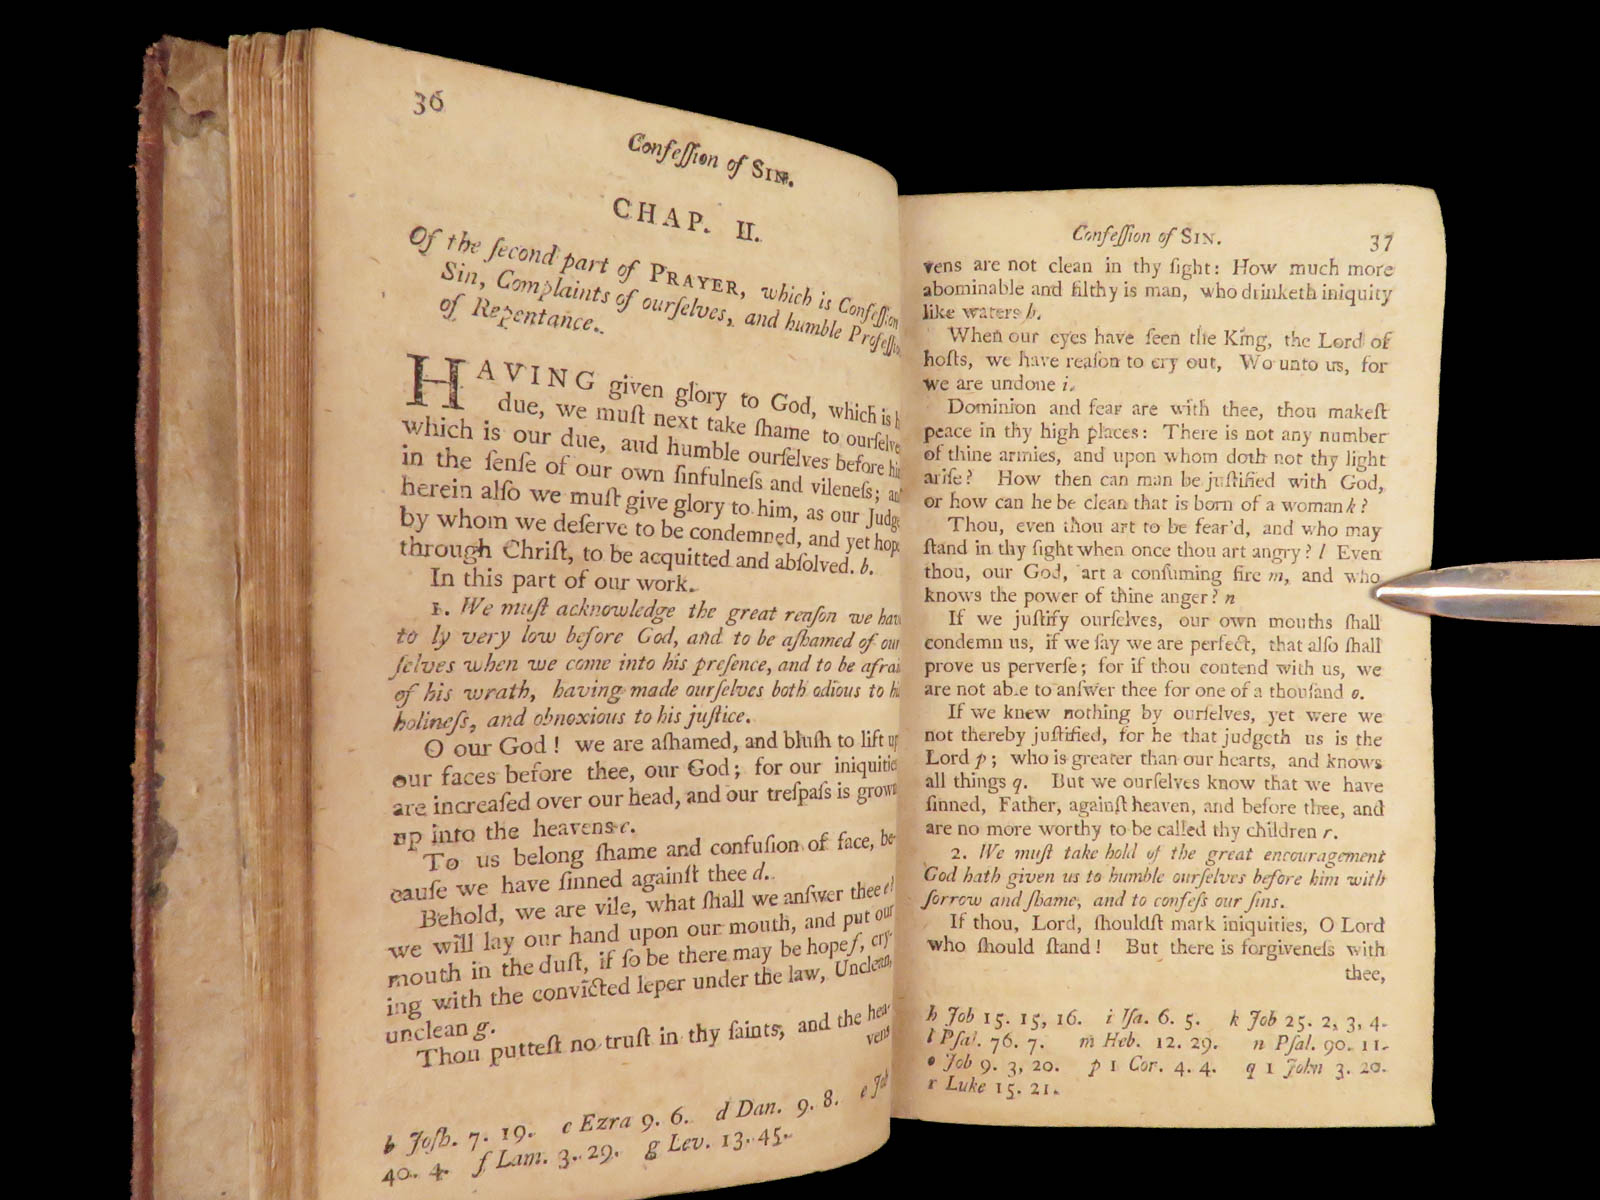 36
Confeſſion of SIN.
CHAP. II.
Of the ſecond part of PRAYER, which is Confeſſion
Sin, Complaints of ourſelves, and humble Profeſſi
of Repentance.
HAVING given glory to God, which is h
due, we muſt next take ſhame to ourſelve
which is our due, aud humble ourſelves before hi
in the ſenſe of our own ſinfulneſs and vileneſs; an
herein alſo we muſt give glory to him, as our Judge
by whom we deſerve to be condemned, and yet hope
through Chriſt, to be acquitted and abſolved. b.
In this part of our work.
1. We muſt acknowledge the great reaſon we hav
to ly very low before God, and to be aſhamed of our
ſelves when we come into his preſence, and to be afrai
of his wrath, having made ourſelves both odious to hi
holineſs, and obnoxious to his juſtice.
O our God! we are aſhamed, and bluſh to lift up
our faces before thee, our God; for our iniquitie
are increaſed over our head, and our treſpaſs is grown
up into the heavens c.
To us belong ſhame and confuſion of face, be-
cauſe we have ſinned againſt thee d.
Behold, we are vile, what ſhall we anſwer thee e!
we will lay our hand upon our mouth, and put our
mouth in the duſt, if ſo be there may be hope f, cry-
ing with the convicted leper under the law, Unclean,
unclean g.
Thou putteſt no truſt in thy ſaints, and the hea-
vens
b Joſh. 7. 19. c Ezra 9. 6. d Dan. 9. 8. e Job
40. 4. f Lam. 3. 29. g Lev. 13. 45.
Confeſſion of SIN. 37
vens are not clean in thy ſight: How much more
abominable and filthy is man, who drinketh iniquity
like waters h.
When our eyes have ſeen the King, the Lord of
hoſts, we have reaſon to cry out, Wo unto us, for
we are undone i.
Dominion and fear are with thee, thou makeſt
peace in thy high places: There is not any number
of thine armies, and upon whom doth not thy light
ariſe? How then can man be juſtified with God,
or how can he be clean that is born of a woman k?
Thou, even thou art to be fear'd, and who may
ſtand in thy ſight when once thou art angry? l Even
thou, our God, art a conſuming fire m, and who
knows the power of thine anger? n
If we juſtify ourſelves, our own mouths ſhall
condemn us, if we ſay we are perfect, that alſo ſhall
prove us perverſe; for if thou contend with us, we
are not able to anſwer thee for one of a thouſand o.
If we knew nothing by ourſelves, yet were we
not thereby juſtified, for he that judgeth us is the
Lord p; who is greater than our hearts, and knows
all things q. But we ourſelves know that we have
ſinned, Father, againſt heaven, and before thee, and
are no more worthy to be called thy children r.
2. We muſt take hold of the great encouragement
God hath given us to humble ourſelves before him with
ſorrow and ſhame, and to confeſs our ſins.
If thou, Lord, ſhouldſt mark iniquities, O Lord
who ſhould ſtand! But there is forgiveneſs with
thee,
h Job 15. 15, 16. i Iſa. 6. 5. k Job 25. 2, 3, 4.
l Pſal. 76. 7. m Heb. 12. 29. n Pſal. 90. 11.
o Job 9. 3, 20. p 1 Cor. 4. 4. q 1 John 3. 20.
r Luke 15. 21.